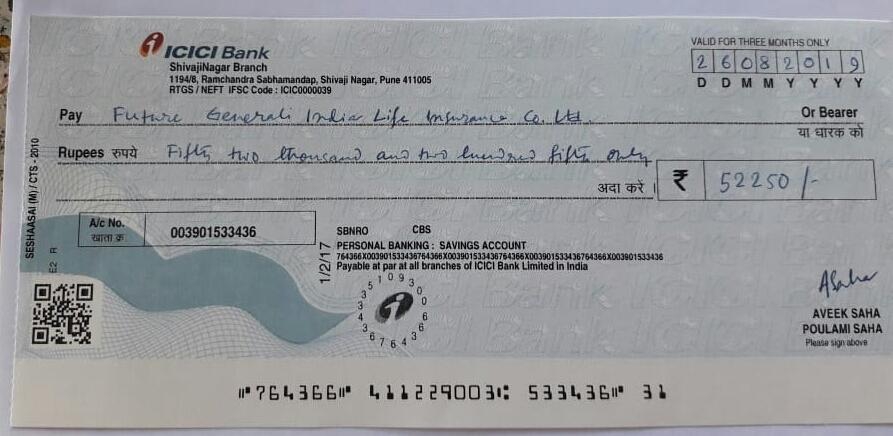 ICICI Bank
ShivajiNagar Branch
1194/8, Ramchandra Sabhamandap, Shivaji Nagar, Pune 411005
RTGS / NEFT IFSC Code : ICIC0000039
VALID FOR THREE MONTHS ONLY
26082019
D D M M Y Y Y Y
Pay Future Generali India Life Insurance Co. Ltd. Or Bearer
या धारक को
Rupees रुपये Fifty two thousand and two hundred fifty only
अदा करें । ₹ 52250/-
SESHAASAI (M) / CTS - 2010
A/c No.
खाता क्र 003901533436
E2 R
1/2/17
SBNRO CBS
PERSONAL BANKING : SAVINGS ACCOUNT
764366X003901533436764366X003901533436764366X003901533436764366X003901533436
Payable at par at all branches of ICICI Bank Limited in India
ASaha
AVEEK SAHA
POULAMI SAHA
Please sign above
⑈764366⑈ 411229003⑆ 533436⑈ 31